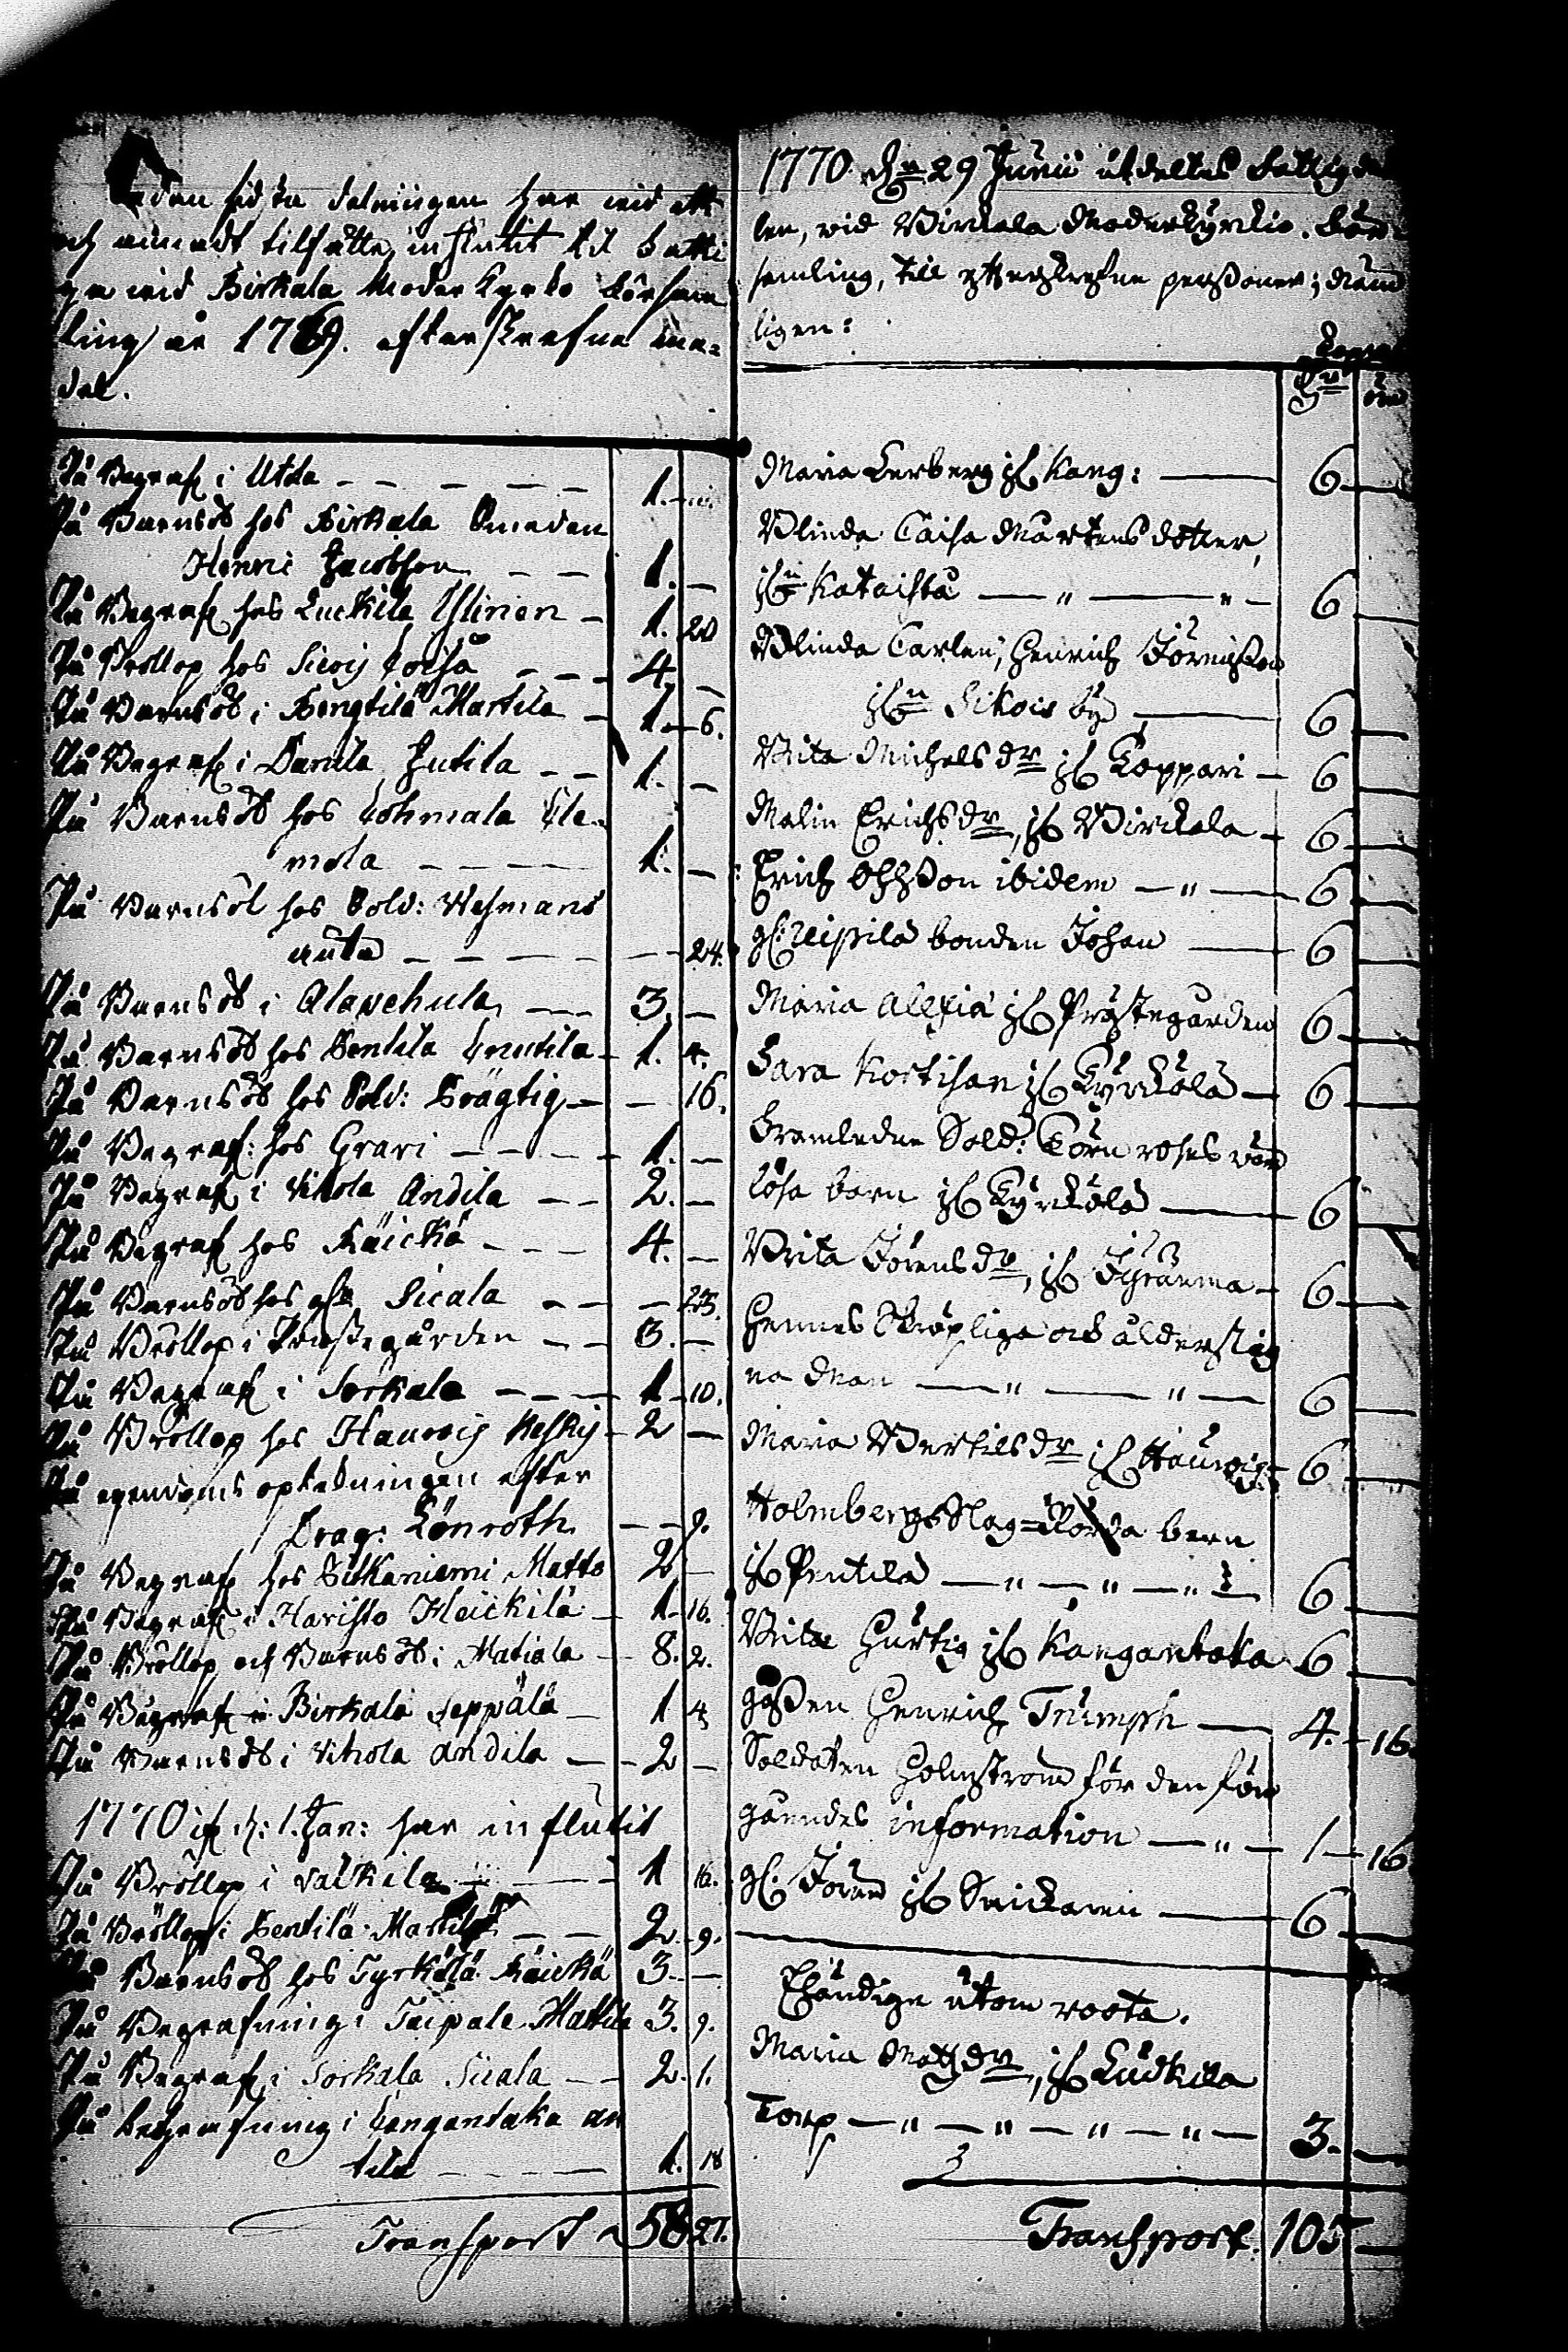 Sedan sidsta delningen har wid ett
och annadt tilfälle influtit til Fatti
ga wid Birkala Moder Kyrko Försam
ling år 1769. efterskrefne me-
del.
På Begraf: i Utala — 1. —
På Barnsöl hos Birkala Smeden
Henric Jacobsson — 1. —
På Begraf: hos Luckila Yllinen — 1. 20
På Bröllop hos Siwoij — 4. —
På Barnsöl i Bengtilä Martila — 1. 6.
På Begraf: i Juttila — 1. —
På Barnsöl hos Lohmala Cle-
mola — 1. —
På Barnsöl hos Sold: Wesmans
— 24.
På Barnsöl i Alawehula — 3. —
På Barnsöl hos Pentila — 1. 4.
På Barnsöl hos Sold: — 16.
På Begraf: hos Grari — 1. —
På Begraf: i Vihola Andila — 2. —
På Begraf: hos Räickä — 4. —
På Barnsöl hos Sicala — 23.
På Bröllop i Prästegården — 3. —
På Begraf: i Sorkala — 1. 10.
På Bröllop hos Hauwij Keskij — 2 —
På egendoms opteckningen efter
Drag: Lönroth — 9.
På Begraf: hos Pitkäniemi Matts — 2 —
På Begraf: i Haristo Heickilä — 1. 16.
På Bröllop och Barnsöl i Matiala — 8. 2.
På Begraf: i Birkala Seppälä — 1 4
På Barnsöl i Vihola Andila — 2 —
1770 ifr. d: 1. Jan: har influtit
På Bröllop i Walkila — 1 16.
På Bröllop i Pentilä Martila — 2. 9.
På Barnsöl hos Tyrkälä Räickä 3. —
På Begrafning i Taipale Mattila 3. 9.
På Begraf: i Sorkala Sicala — 2. 1.
På Begrafning i Kangantaka An
tila — 1. 18
Transport 58 27.
1770 d. 29 Junii utdeltes Fattigde
len, wid Birckala Moderkyrkio För
samling, till efterskrefne personer; Näm
ligen:
Maria Lerberg ifr. Kang: — 6 —
Blinda Caisa Mårtens dotter,
ifr. Kataisto — " — " — 6 —
Blinda Carlen, Henrich Jörensson
ifr. Sikois by — 6 —
Brita Michels dr. ifr. Koppari — 6 —
Malin Erichs dr., ifr. Birckala — 6 —
Erich Ohlsson ibidem — " — 6 —
gl: bonden Johan — 6 —
Maria Alexia ifr. Prästegården 6 —
Sara Kortisan ifr. Kyrckölä — 6 —
Framledne Sold: Törnroses wård
lösa barn ifr. Kyrckölä — 6 —
Brita Jörens dr., ifr. — 6 —
Hennes Skröpliga och ålderstig
na Man — " — " — 6 —
Maria Bertils dr. ifr. Hauwoij — 6 —
Holmbergs Slag-rörda barn
ifr. Pentilä — " — " — " — 6 —
Brita Hurtig ifr. Kangantaka 6 —
gossen Henrich Triumph — 4. 16.
Soldaten Holmström för den före
gåendes information — " — 1 — 16
gl: Jören ifr. Snickarin — 6 —
Eländige utom roota.
Maria Matts dr., ifr. Luckila
Torp — " — " — " — " — 3. —
Transport. 105 —